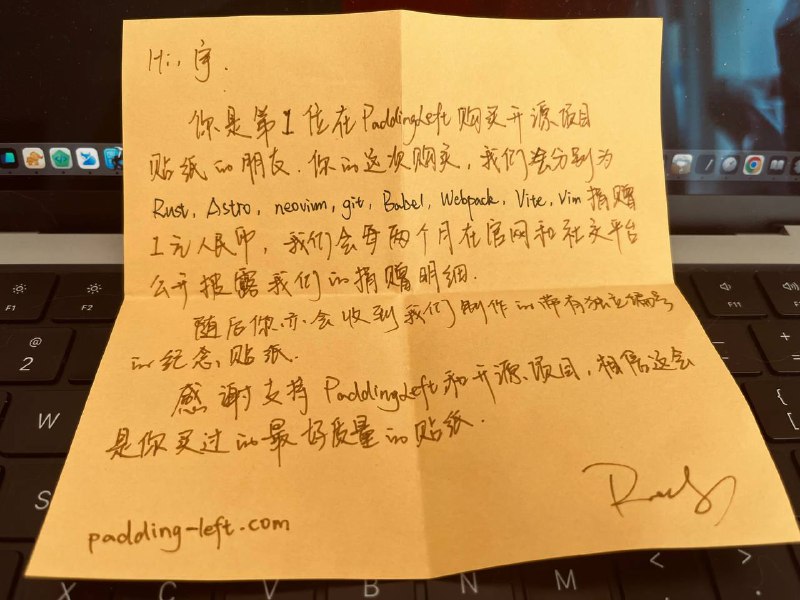 Hi, 宇.
你是第1位在PaddingLeft购买开源项目
贴纸的朋友. 你的这次购买, 我们会分别为
Rust, Astro, neovium, git, Babel, Webpack, Vite, Vim 捐赠
1元人民币, 我们会每两个月在官网和社交平台
公开披露我们的捐赠明细.
随后你亦会收到我们制作的带有独立编号
的纪念贴纸.
感谢支持 PaddingLeft 和开源项目, 相信这会
是你买过的最好质量的贴纸.
padding-left.com
F1
F2
F11
F12
@
2
W
S
X
C
V
B
N
M
<
>
{
[